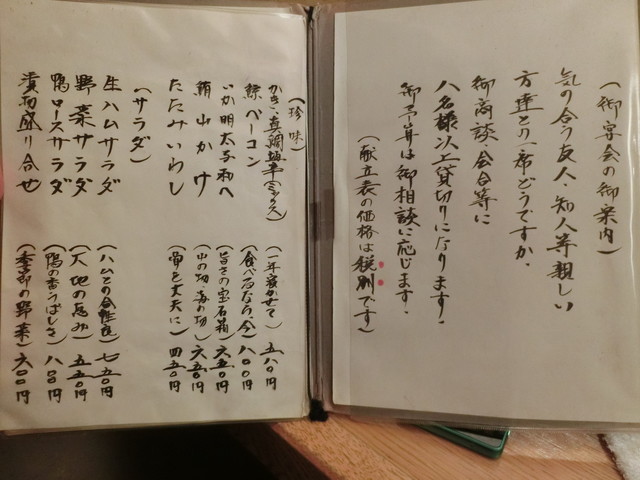 (御宴会の御案内)
気の合う友人・知人等親しい
方達と一席どうですか。
御商談・会合等に
八名様以上貸切りになります。
御予算は御相談に応じます。
(献立表の価格は税別です)
(珍味)
かき・真鯛塩辛(ミックス) (一年寝かせて) 五八〇円
鯨ベーコン (食べるなら今) 八〇〇円
いか明太子和へ (旨さの宝石箱) 六五〇円
鮪山かけ (山の幸・海の幸) 六五〇円
たたみいわし (骨を丈夫に) 四五〇円
(サラダ)
生ハムサラダ (ハムとの合性良) 七五〇円
野菜サラダ (大地の恵み) 五五〇円
鴨ロースサラダ (鴨の香うばしさ) 八〇〇円
漬物盛り合せ (季節の野菜) 六〇〇円